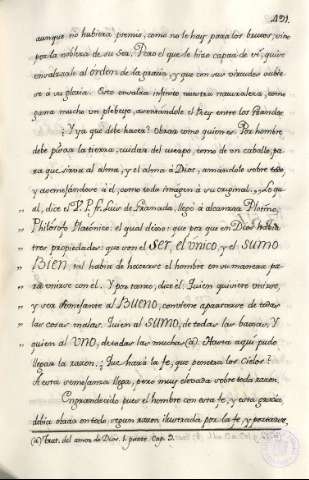 491.
aunque no hubiera premio, como no le hay para los brutos, sino
por la nobleza de su Ser. Pero el que le hizo capaz de sí, quiso
ensalzarle al orden de la gracia, y que con sus virtudes subie-
se á su gloria. Esto ensalza infinito nuestra naturaleza, como
gana mucho un plebeyo, asentándole el Rey entre los Grandes.
¿Y ya qué debe hacer? Obrar como quien es. Por hombre
debe pisar la tierra, cuidar del cuerpo, como de un caballo, pa-
ra que sirva al alma, y el alma á Dios, amándole sobre todo
y asemejandose á él, como toda imagen á su original,,. Lo qu-
al, dice el V. P. Fr. Luis de Granada, llegó á alcanzar Plotino,
Philósofo Platónico: el qual dixo: que pues que en Dios había
tres propiedades: que son el SER, el UNICO, y el SUMO
BIEN, tal había de hacerse el hombre en su manera pa-
ra unirse con él. Y por tanto, dice él: Quien quisiere unirse,
y ser semejante al BUENO, conviene apartarse de todas
las cosas malas: Quien al SUMO, de todas las baxas: Y
quien al UNO, de todas las muchas (a). Hasta aquí pudo
llegar la razon. ¿Qué hará la fe, que penetra los Cielos?
A esta semejanza llega, pero muy elevada sobre toda razon.
Engrandecido pues el hombre con esta fe, y esta gracia,
debia obrar en todo segun razon ilustrada por la fe, y portarse,
(a) Trat. del amor de Dios. 1. parte. Cap. 3.